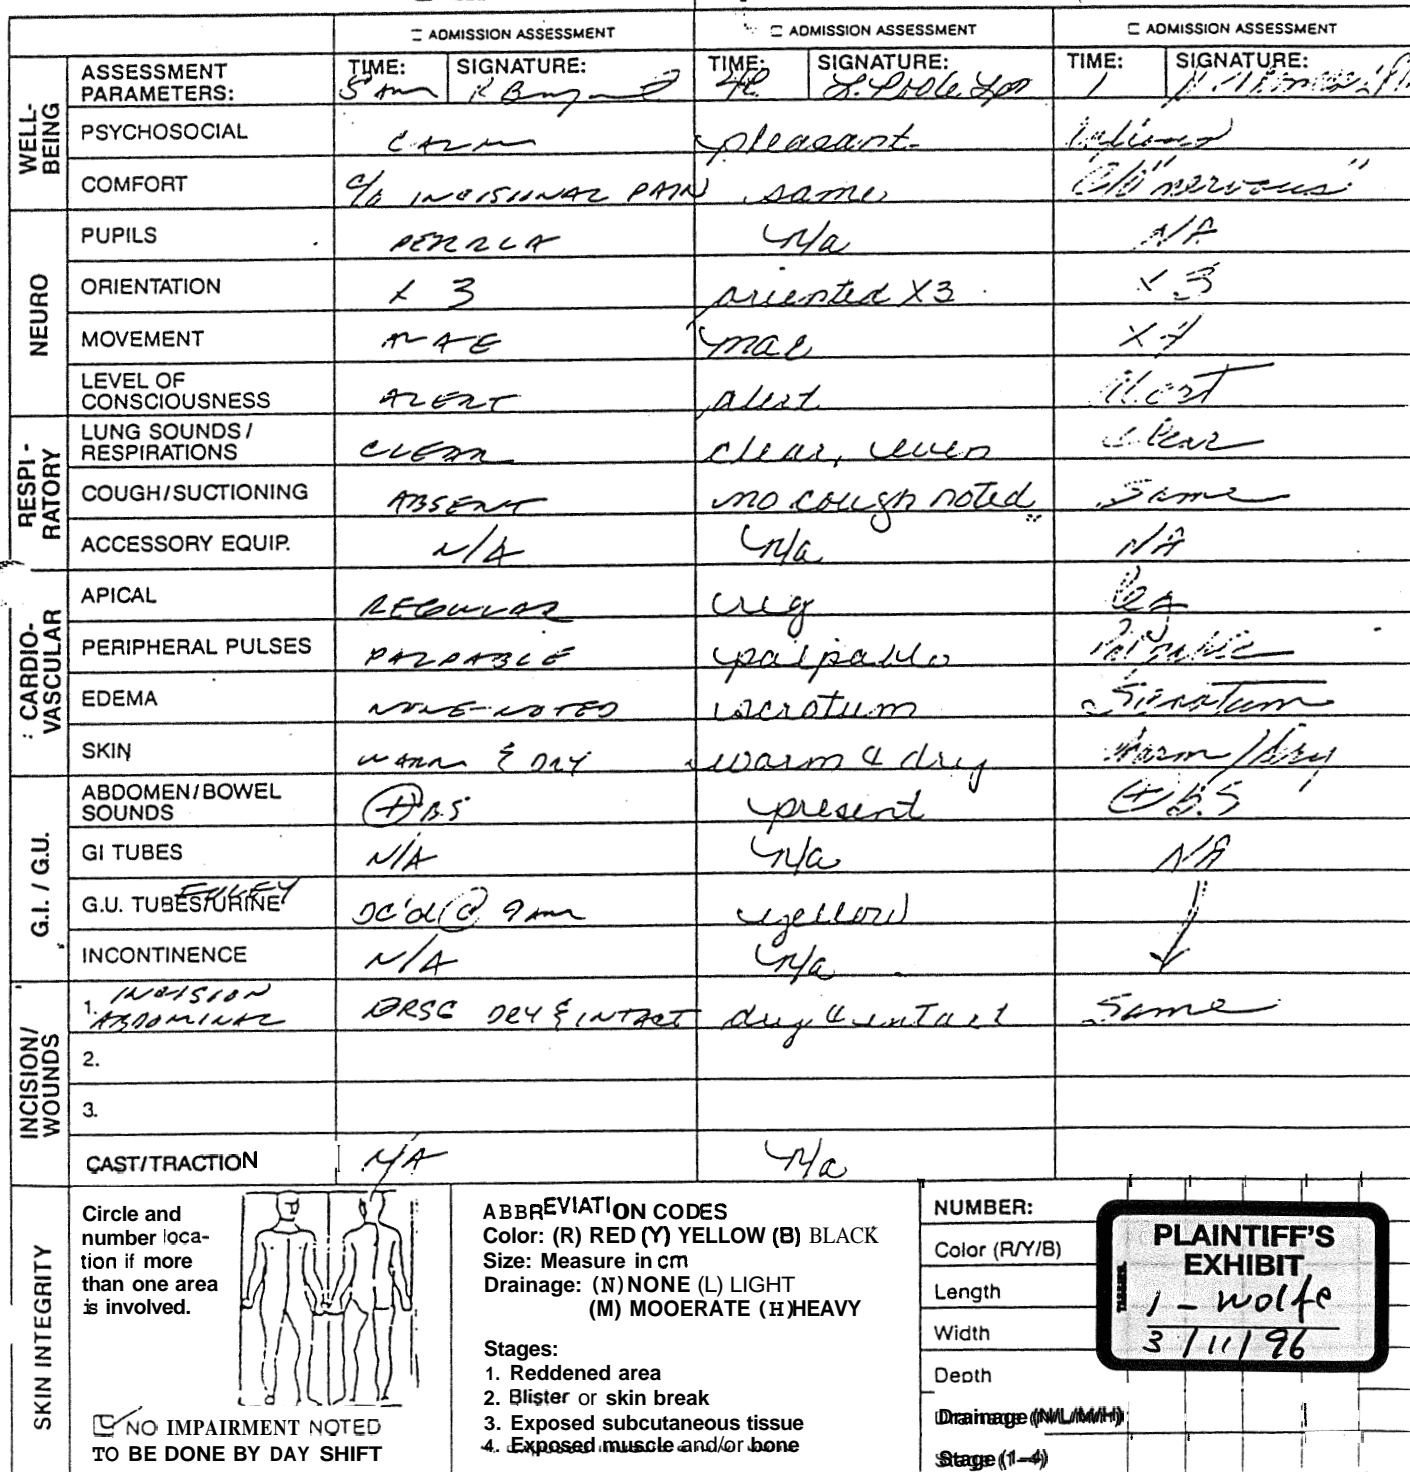 ADMISSION ASSESSMENT ADMISSION ASSESSMENT ADMISSION ASSESSMENT
WELL-BEING
ASSESSMENT PARAMETERS: TIME: SIGNATURE: TIME: SIGNATURE: TIME: SIGNATURE:
PSYCHOSOCIAL CALM pleasant
COMFORT c/o INCISIONAL PAIN same c/o "nervous"
NEURO
PUPILS PERRLA n/a N/A
ORIENTATION x 3 oriented X3 x 3
MOVEMENT MAE mae x4
LEVEL OF CONSCIOUSNESS ALERT alert Alert
RESPI-RATORY
LUNG SOUNDS/ RESPIRATIONS CLEAR clear, even clear
COUGH/SUCTIONING ABSENT no cough noted Same
ACCESSORY EQUIP. N/A n/a N/A
CARDIO-VASCULAR
APICAL REGULAR reg Reg
PERIPHERAL PULSES PALPABLE palpable Palpable
EDEMA NONE NOTED scrotum Scrotum
SKIN WARM & DRY warm & dry Warm/dry
G.I. / G.U.
ABDOMEN/BOWEL SOUNDS (+) B.S present (+) B.S
GI TUBES N/A n/a N/A
G.U. TUBES/URINE FOLEY DC'd @ 9am yellow
INCONTINENCE N/A n/a
INCISION/WOUNDS
1. INCISION ABDOMINAL DRSG DRY & INTACT dry & intact Same
2.
3.
CAST/TRACTION N/A n/a
SKIN INTEGRITY
Circle and
number loca-
tion if more
than one area
is involved.
NO IMPAIRMENT NOTED
TO BE DONE BY DAY SHIFT
ABBREVIATION CODES
Color: (R) RED (Y) YELLOW (B) BLACK
Size: Measure in cm
Drainage: (N) NONE (L) LIGHT
(M) MOOERATE (H)HEAVY
Stages:
1. Reddened area
2. Blister or skin break
3. Exposed subcutaneous tissue
4. Exposed muscle and/or bone
NUMBER:
Color (R/Y/B)
Length
Width
Depth
Drainage (N/L/M/H)
Stage (1-4)
PLAINTIFF'S
EXHIBIT
1 - wolfe
3/11/96